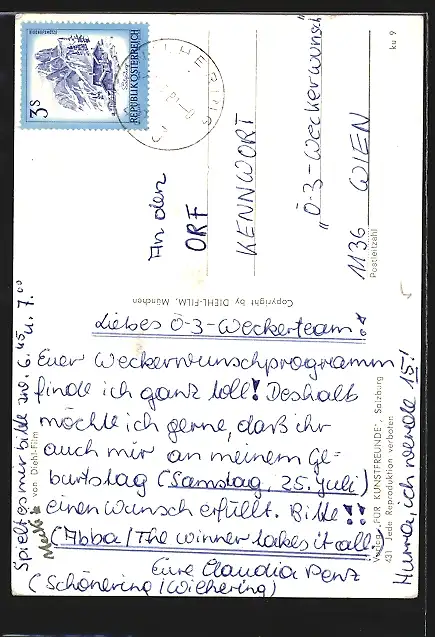 3 S
REPUBLIK ÖSTERREICH
An den
ORF
KENNWORT
„Ö-3-Weckerwunsch"
1136 WIEN
Postleitzahl
ku 9
Copyright by DIEHL-FILM, München
Liebes Ö-3-Weckerteam!
Euer Weckerwunschprogramm
finde ich ganz toll! Deshalb
möchte ich gerne, daß ihr
auch mir an meinem Ge-
burtstag (Samstag, 25. Juli)
einen Wunsch erfüllt. Bitte!!
(Abba / The winner takes it all)
Eure Claudia Penz
(Schönering / Wilhering)
Spielt es mir bitte zw. 6.45
u. 7.00
Hurra, ich werde 15!
von Diehl-Film
Verlag „FÜR KUNSTFREUNDE", Salzburg
431 Jede Reproduktion verboten